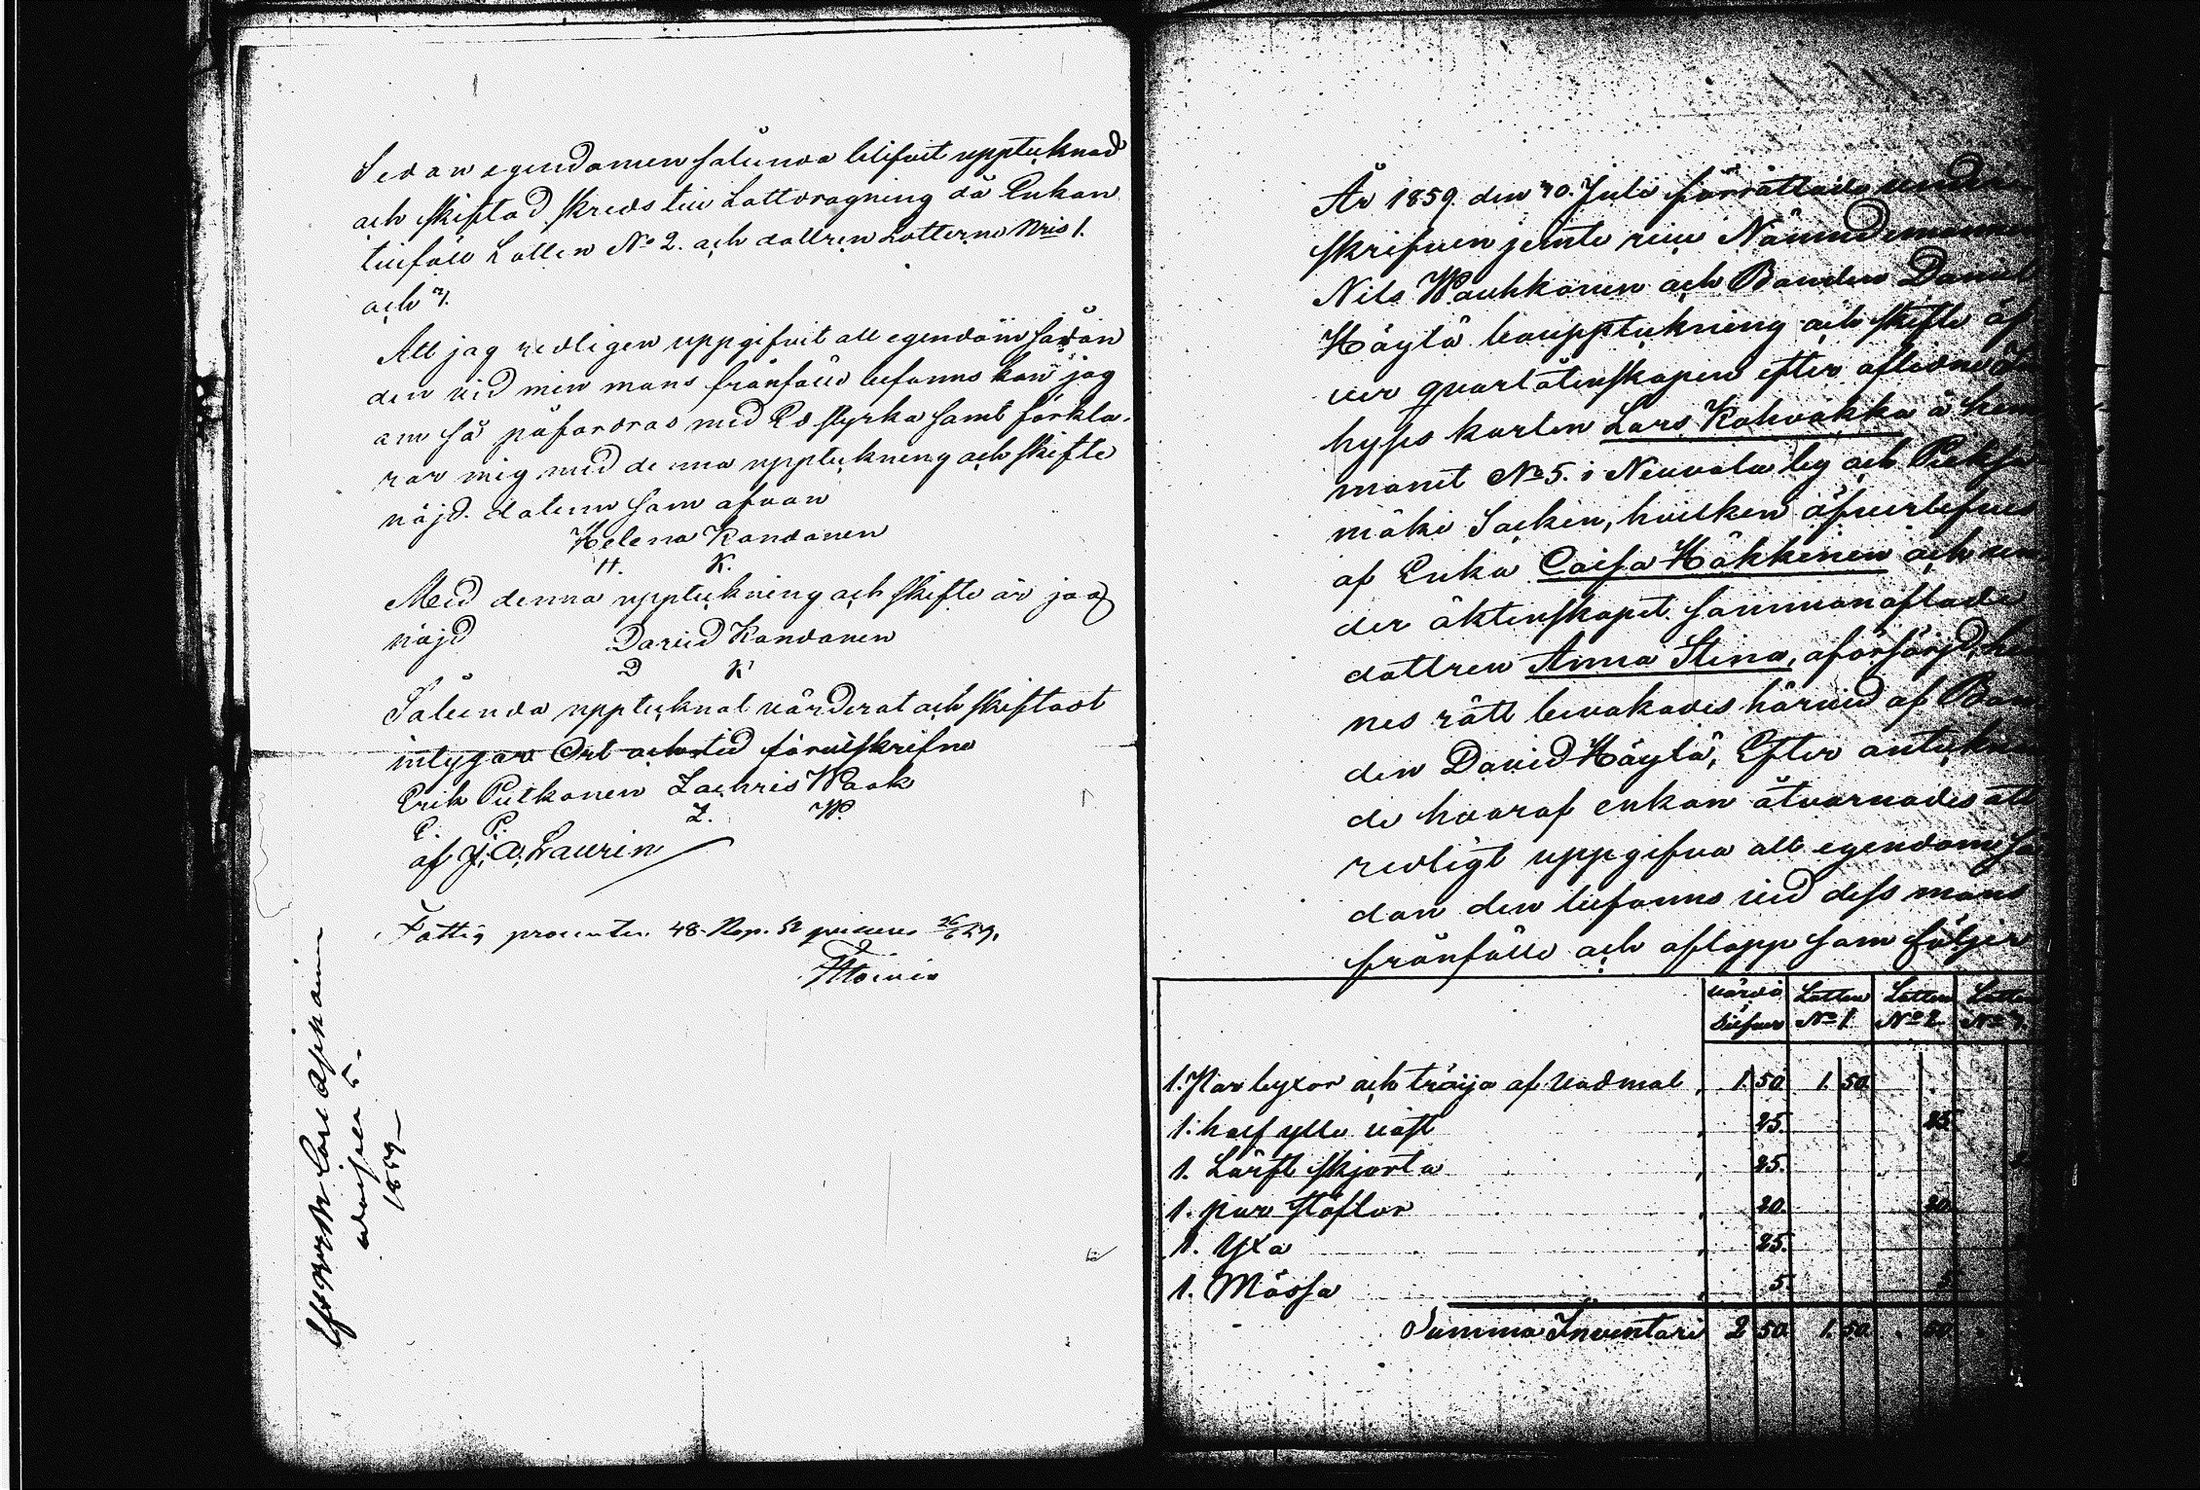 Sedan egendomen sålunda blifvit upptecknad
och skiftad skreds till Lottdragning då Enkan
tillföll Lotten No 2. och dottren Lotterne Nris 1.
och 3.
Att jag redligen uppgifvit all egendom sådan
den vid min mans frånfälle befanns kan jag
om så påfordras med Ed styrka samt förkla-
rar mig med denna uppteckning och skifte
nöjd. datum som ofvan
Helena Kandanen
H. K.
Med denna uppteckning och skifte är jag
nöjd David Kandanen
D K
Sålunda upptecknat värderat och skiftadt
intygar Ort och tid förutskrifne
Erik Putkonen Zachris Waak
E. P. Z. W.
af J. A. Laurin
Fattig procenter 48. Kop. Sr
1859
År 1859 den 30. Juli förrättade under-
skrifven jemte
Nils Wauhkonen och Bonden Daniel
Höylä bouppteckning och skifte af
qvarlåtenskapen efter aflidne
hyses karlen Lars Kahvakka å hem-
manet No 5. i Neuvola by och Pieksä-
mäki Socken, hvilken öfverlefves
af Enka Caisa Häkkinen och un-
der äktenskapet sammanaflade
dottren Anna Stina, oförsörjd, hen-
nes rätt bevakades härvid af Bon-
den David Höylä, Efter anteckn
de hvaraf enkan åtvarnades att
redligt uppgifva all egendom så-
dan den befanns vid dess mans
frånfälle och aflopp som följer
värde Silfver Lotten No 1. Lotten No 2. Lotten No 3.
1. Par byxor och tröija af vadmal 1. 50. 1. 50.
1. half ylle väst 25. 25.
1. Lärft skjorta 25.
1. par stöflor 20. 20.
1. Yxa 25.
1. Mössa 5. 5.
Summa Inventari 2 50. 1. 50. 50.